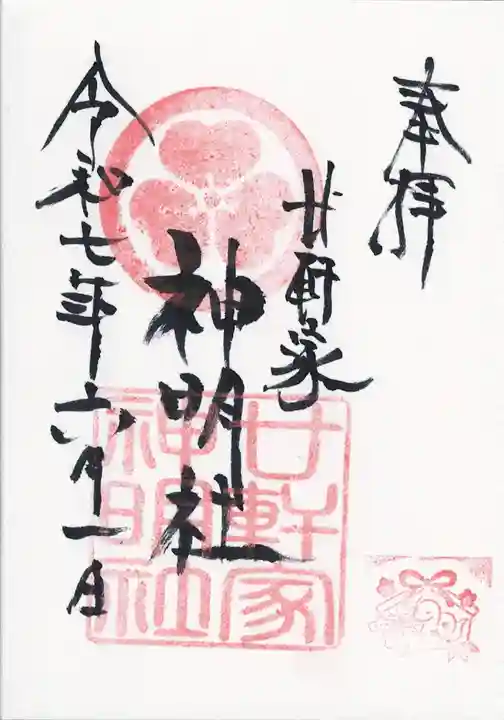 奉拝
廿軒家
神明社
令和七年六月一日
廿軒家
神明社